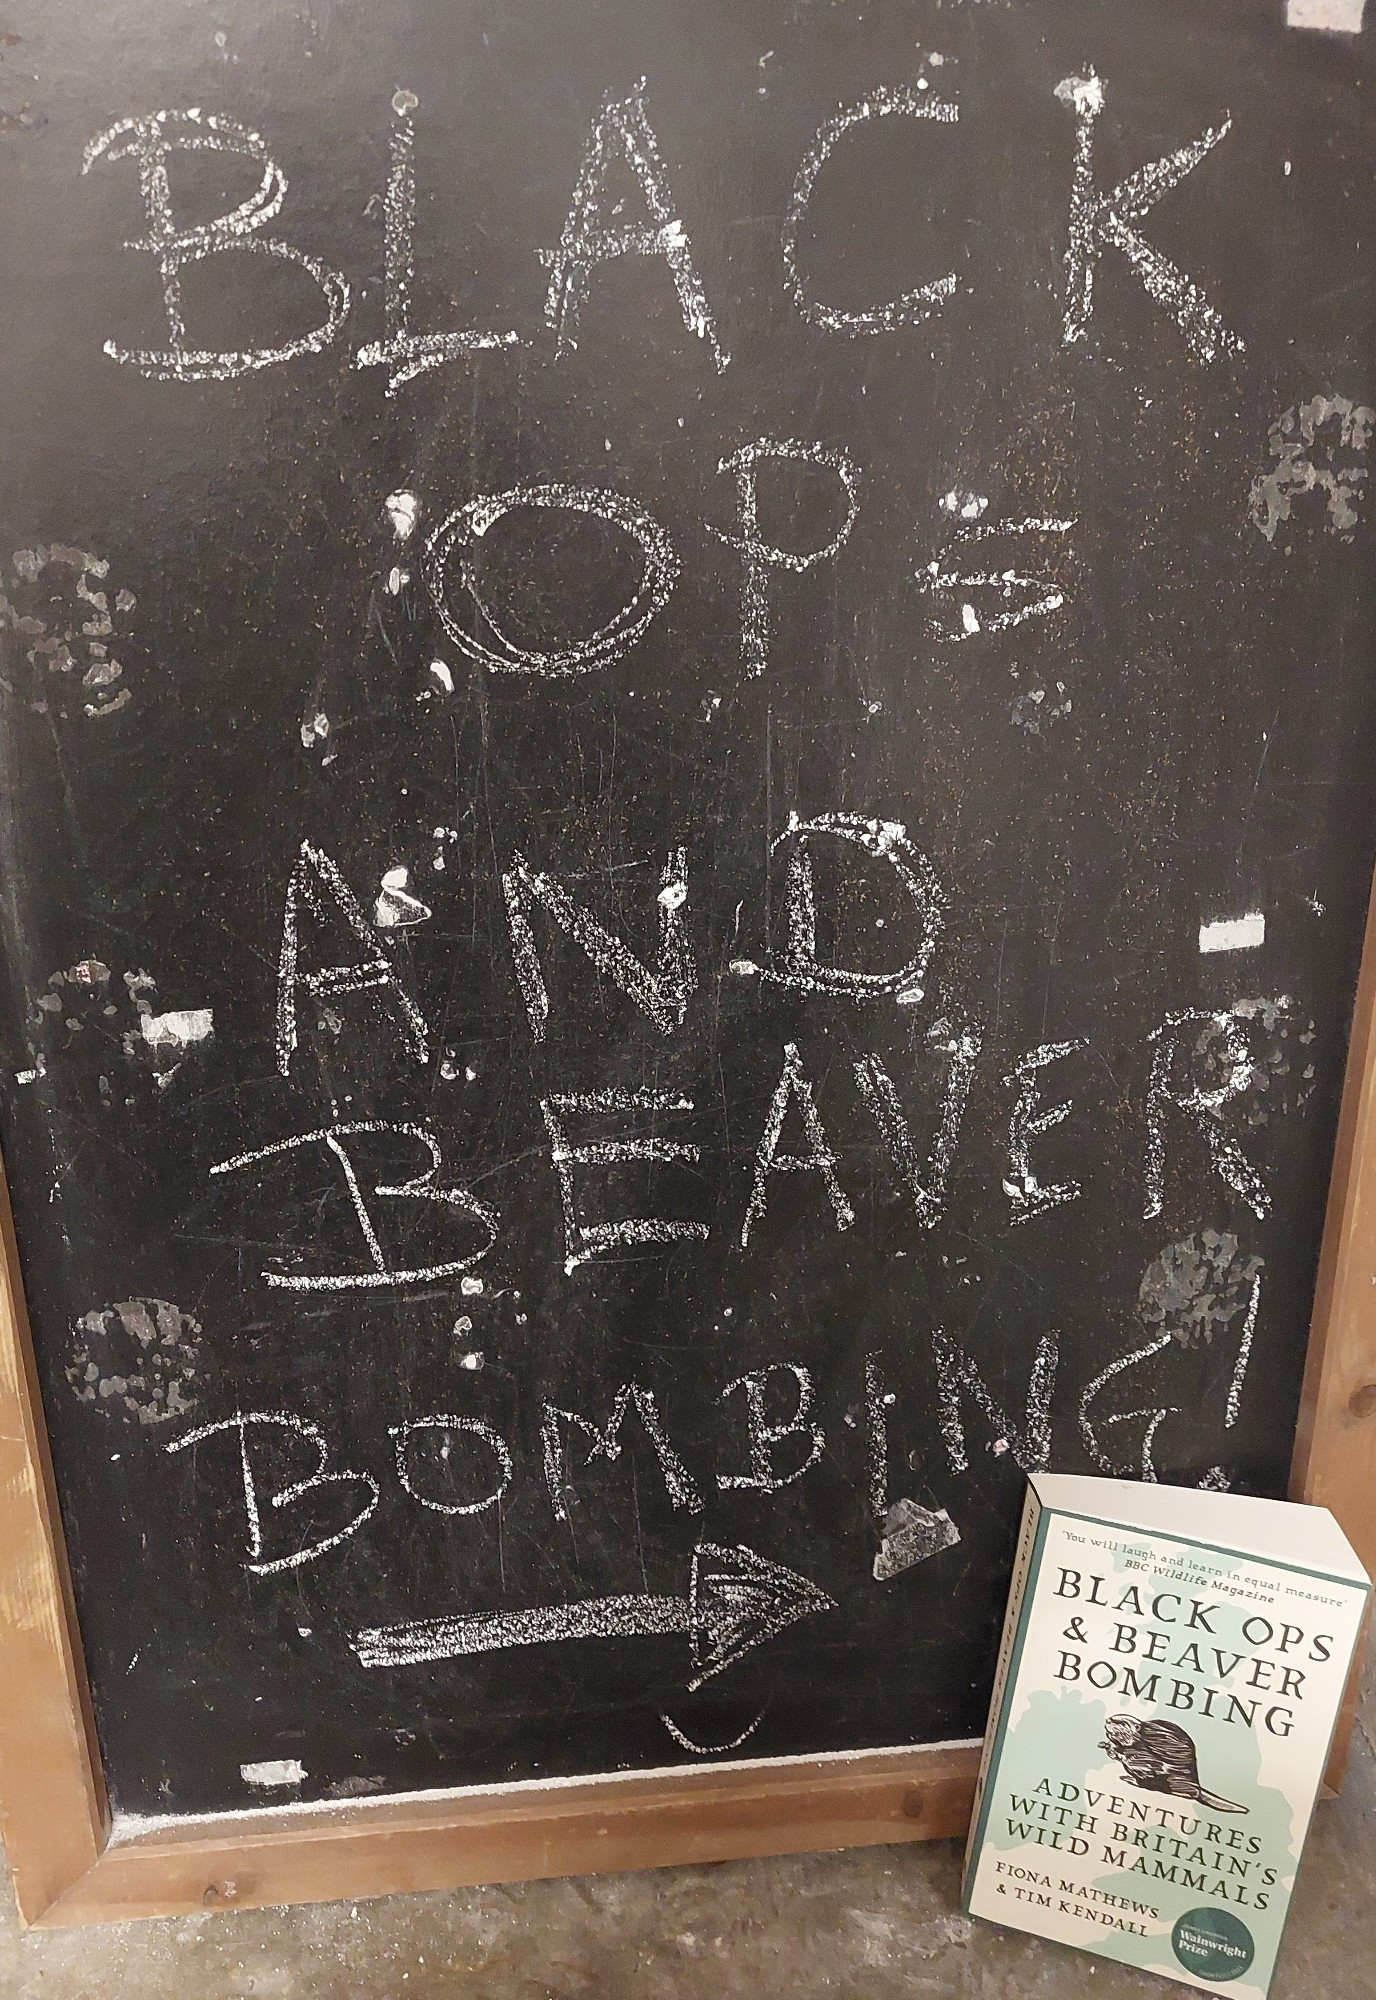 BLACK
OPS
AND
BEAVER
BOMBING!
'You will laugh and learn in equal measure'
BBC Wildlife Magazine
BLACK OPS
& BEAVER
BOMBING
ADVENTURES
WITH BRITAIN'S
WILD MAMMALS
FIONA MATHEWS
& TIM KENDALL
Wainwright
Prize